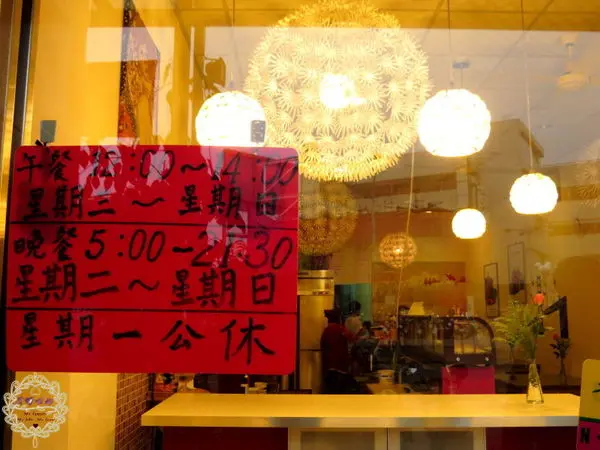 午餐 12:00～14:00
星期三～星期日
晚餐 5:00-21:30
星期二～星期日
星期一公休
N